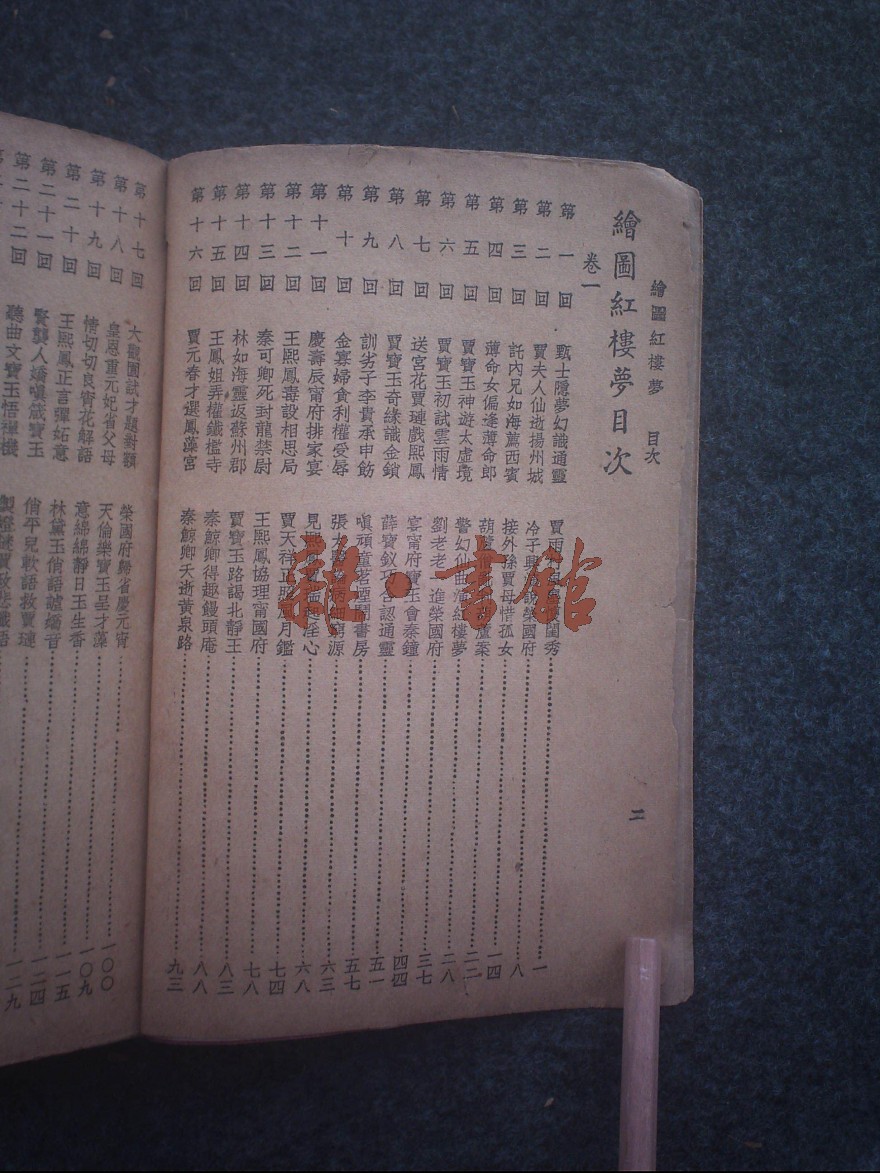 繪圖紅樓夢　目次
二
繪圖紅樓夢目次
卷一
第一回　甄士隱夢幻識通靈　賈雨村風塵懷閨秀……一
第二回　賈夫人仙逝揚州城　冷子興演說榮國府……八
第三回　託內兄如海薦西賓　接外孫賈母惜孤女……一四
第四回　薄命女偏逢薄命郎　葫蘆僧　葫蘆案……二二
第五回　賈寶玉神遊太虛境　警幻仙曲演紅樓夢……二八
第六回　賈寶玉初試雲雨情　劉老老一進榮國府……三七
第七回　送宮花賈璉戲熙鳳　宴甯府寶玉會秦鐘……四四
第八回　賈寶玉奇緣識金鎖　薛寶釵巧合認通靈……五一
第九回　訓劣子李貴承申飭　嗔頑童茗煙鬧書房……五七
第十回　金寡婦貪利權受辱　張太醫　病細窮源……六三
第十一回　慶壽辰甯府排家宴　見熙鳳賈瑞起淫心……六八
第十二回　王熙鳳毒設相思局　賈天祥正照風月鑑……七四
第十三回　秦可卿死封龍禁尉　王熙鳳協理甯國府……七八
第十四回　林如海靈返蘇州郡　賈寶玉路謁北靜王……八三
第十五回　王鳳姐弄權鐵檻寺　秦鯨卿得趣饅頭庵……八八
第十六回　賈元春才選鳳藻宮　秦鯨卿夭逝黃泉路……九三
第十七回　大觀園試才題對額　榮國府歸省慶元宵……一〇〇
第十八回　皇恩重元妃省父母　天倫樂寶玉呈才藻……一〇九
第十九回　情切切良宵花解語　意綿綿靜日玉生香……一一五
第二十回　王熙鳳正言彈妬意　林黛玉俏語謔嬌音……一二四
第二十一回　賢襲人嬌嗔箴寶玉　俏平兒軟語救賈璉……一二九
第二十二回　聽曲文寶玉悟禪機　製燈謎賈政悲讖語
雜·書館